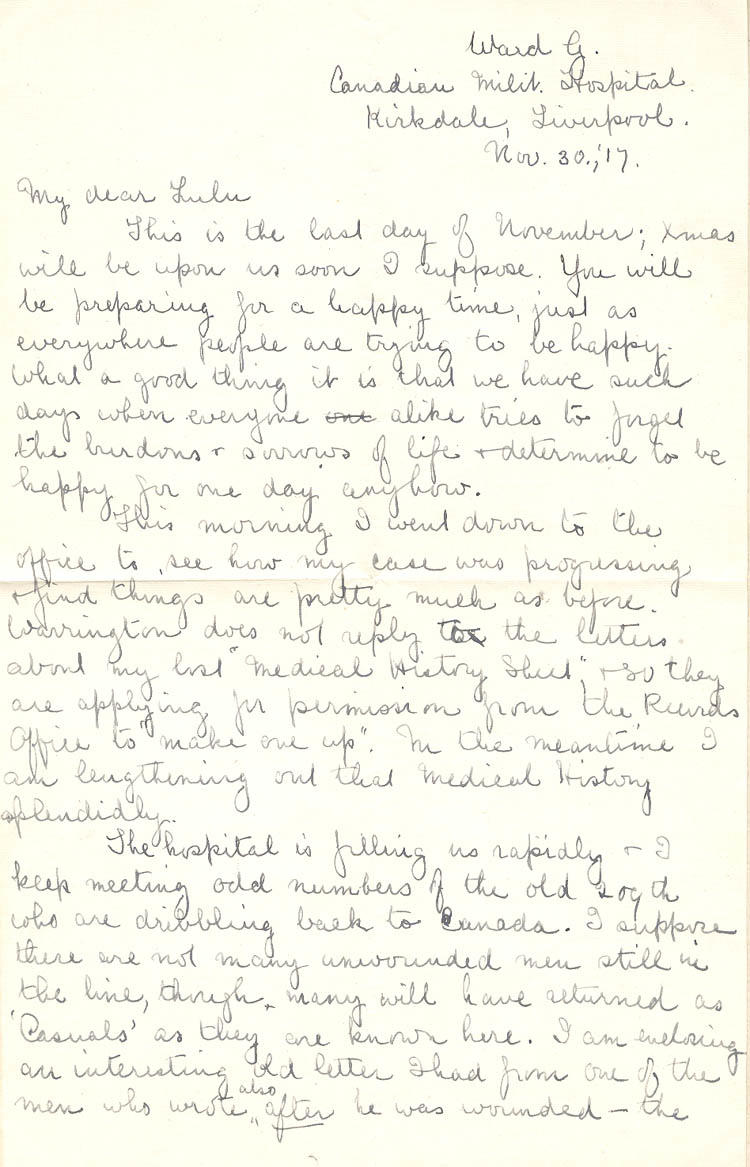 Ward G.
Canadian Milit. Hospital.
Kirkdale, Liverpool.
Nov. 30.,'17.
My dear Lulu
This is the last day of November; Xmas
will be upon us soon I suppose. You will
be preparing for a happy time, just as
everywhere people are trying to be happy.
What a good thing it is that we have such
days when everyone one alike tries to forget
the burdons + sorrows of life + determine to be
happy for one day anyhow.
This morning I went down to the
office to see how my case was progressing
+ find things are pretty much as before.
Warrington does not reply to the letters
about my lost "Medical History Sheet", + so they
are applying for permission from the Records
Office to "make one up". In the meantime I
am lengthening out that Medical History
splendidly.
The hospital is filling us rapidly + I
keep meeting odd numbers of the old 209th
who are dribbling back to Canada. I suppose
there are not many unwounded men still in
the line, though, many will have returned as
'Casuals' as they are known here. I am enclosing
an interesting old letter I had from one of the
men who wrote also after he was wounded – the